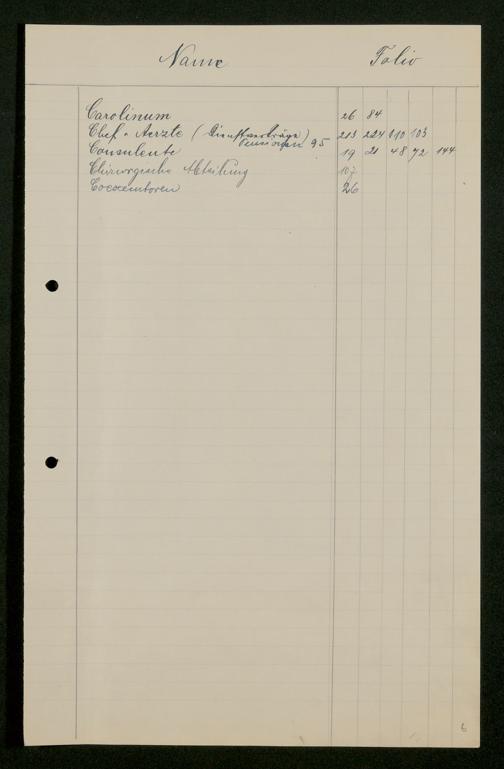 Name Folio
Carolinum 26 84
Chef-Aerzte (Dienstverträge) 213 224 110 103
Pensionen 95
Consulente 19 21 48 72 144
Chirurgische Abteilung 107
26
6